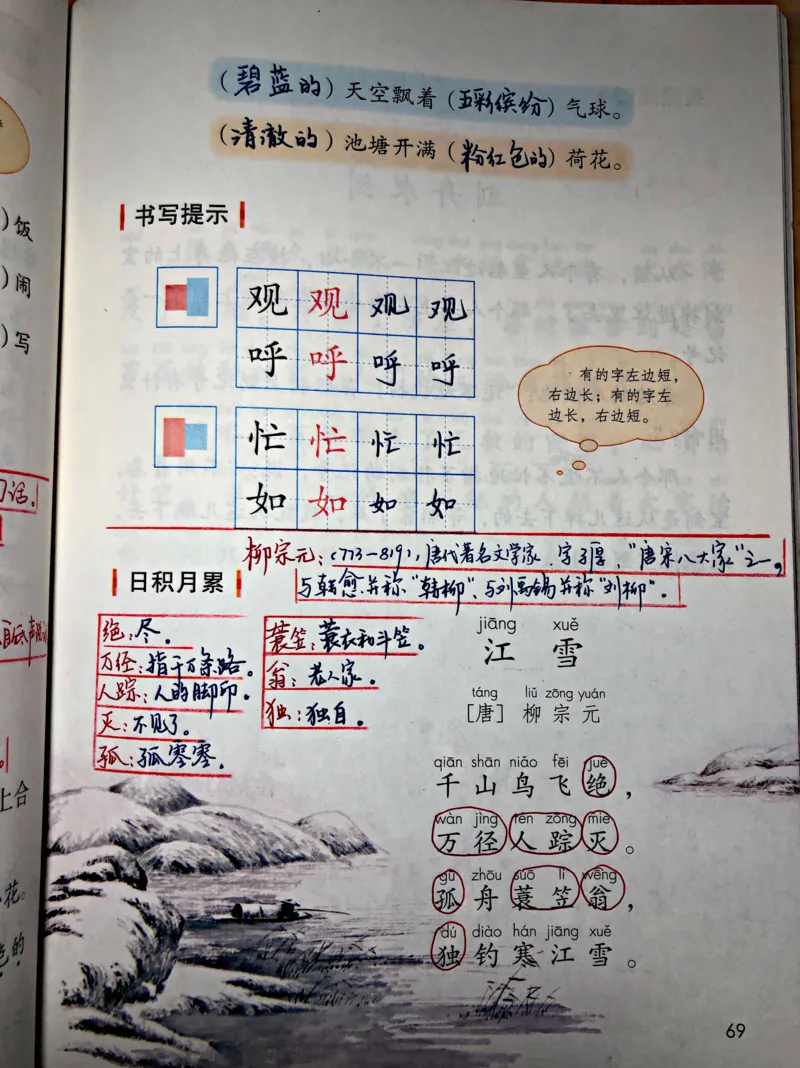 (碧蓝的)天空飘着(五彩缤纷)气球。
(清澈的)池塘开满(粉红色的)荷花。
书写提示
观 观 观 观
呼 呼 呼 呼
有的字左边短，
右边长；有的字左
边长，右边短。
忙 忙 忙 忙
如 如 如 如
柳宗元：(773—819)，唐代著名文学家，字子厚，"唐宋八大家"之一，
与韩愈并称"韩柳"，与刘禹锡并称"刘柳"。
日积月累
绝：尽。
万径：指千万条路。
人踪：人的脚印。
灭：不见了。
孤：孤零零。
蓑笠：蓑衣和斗笠。
翁：老人家。
独：独自。
jiāng xuě
江雪
táng liǔ zōng yuán
[唐] 柳宗元
qiān shān niǎo fēi jué
千山鸟飞绝，
wàn jìng rén zōng miè
万径人踪灭。
gū zhōu suō lì wēng
孤舟蓑笠翁，
dú diào hán jiāng xuě
独钓寒江雪。
69
)饭
)闹
)写
话。
上合
花。
色的